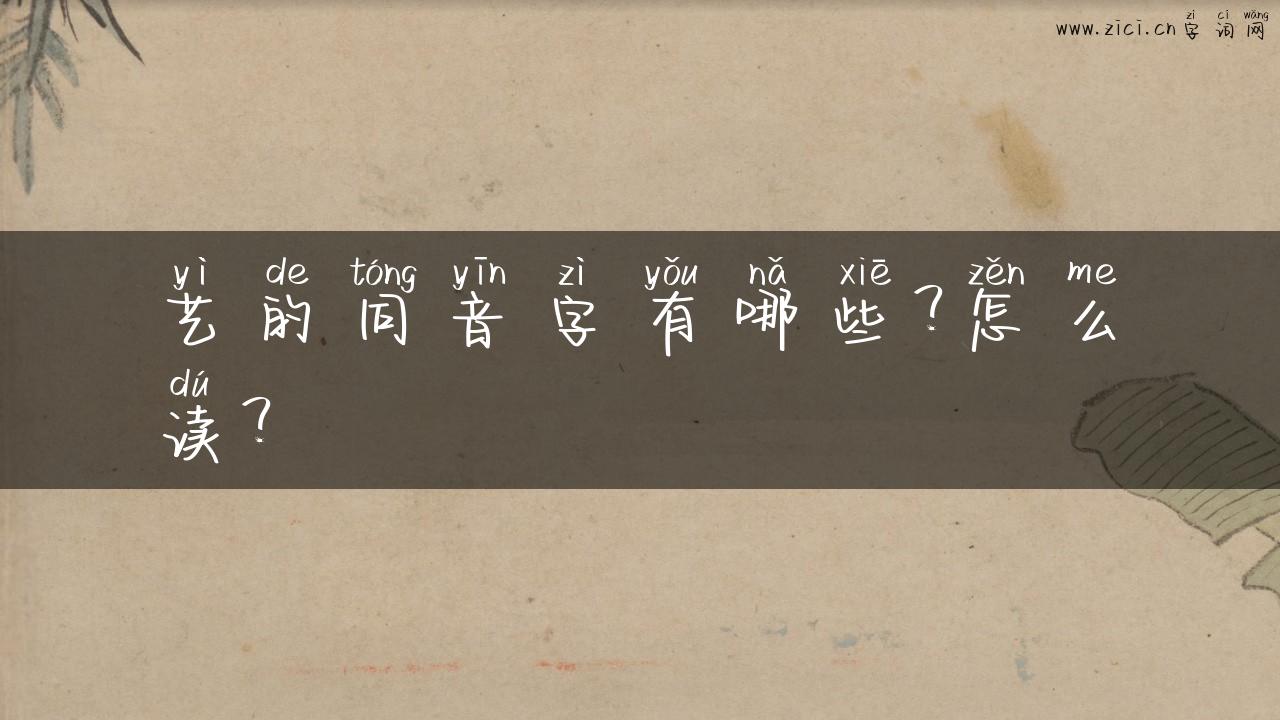 zì cí wǎng
www.zici.cn 字词网
yì de tóng yīn zì yǒu nǎ xiē zěn me
艺的同音字有哪些？怎么
dú
读？